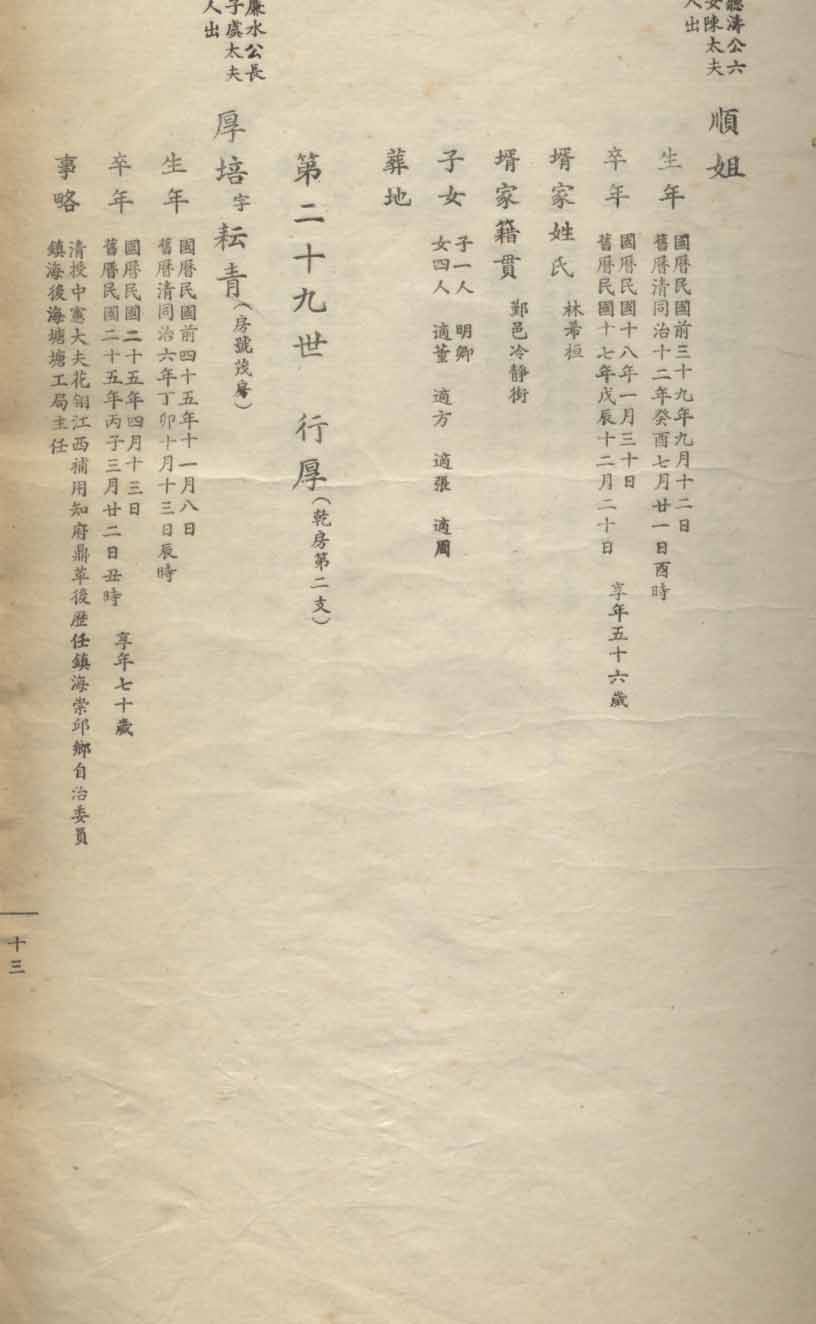 聽濤公六
女陳太夫
人出
順姐
生年
國曆民國前三十九年九月十二日
舊曆清同治十二年癸酉七月廿一日酉時
卒年
國曆民國十八年一月三十日
舊曆民國十七年戊辰十二月二十日
享年五十六歲
壻家姓氏 林希桓
壻家籍貫 鄞邑冷靜街
子女
子一人 明卿
女四人 適董 適方 適張 適周
葬地
第二十九世 行厚(乾房第二支)
廉水公長
子虞太夫
人出
厚培字耘青(房號茂房)
生年
國曆民國前四十五年十一月八日
舊曆清同治六年丁卯十月十三日辰時
卒年
國曆民國二十五年四月十三日
舊曆民國二十五年丙子三月廿二日丑時
享年七十歲
事略
清授中憲大夫花翎江西補用知府鼎革後歷任鎮海崇邱鄉自治委員
鎮海後海塘塘工局主任
十三